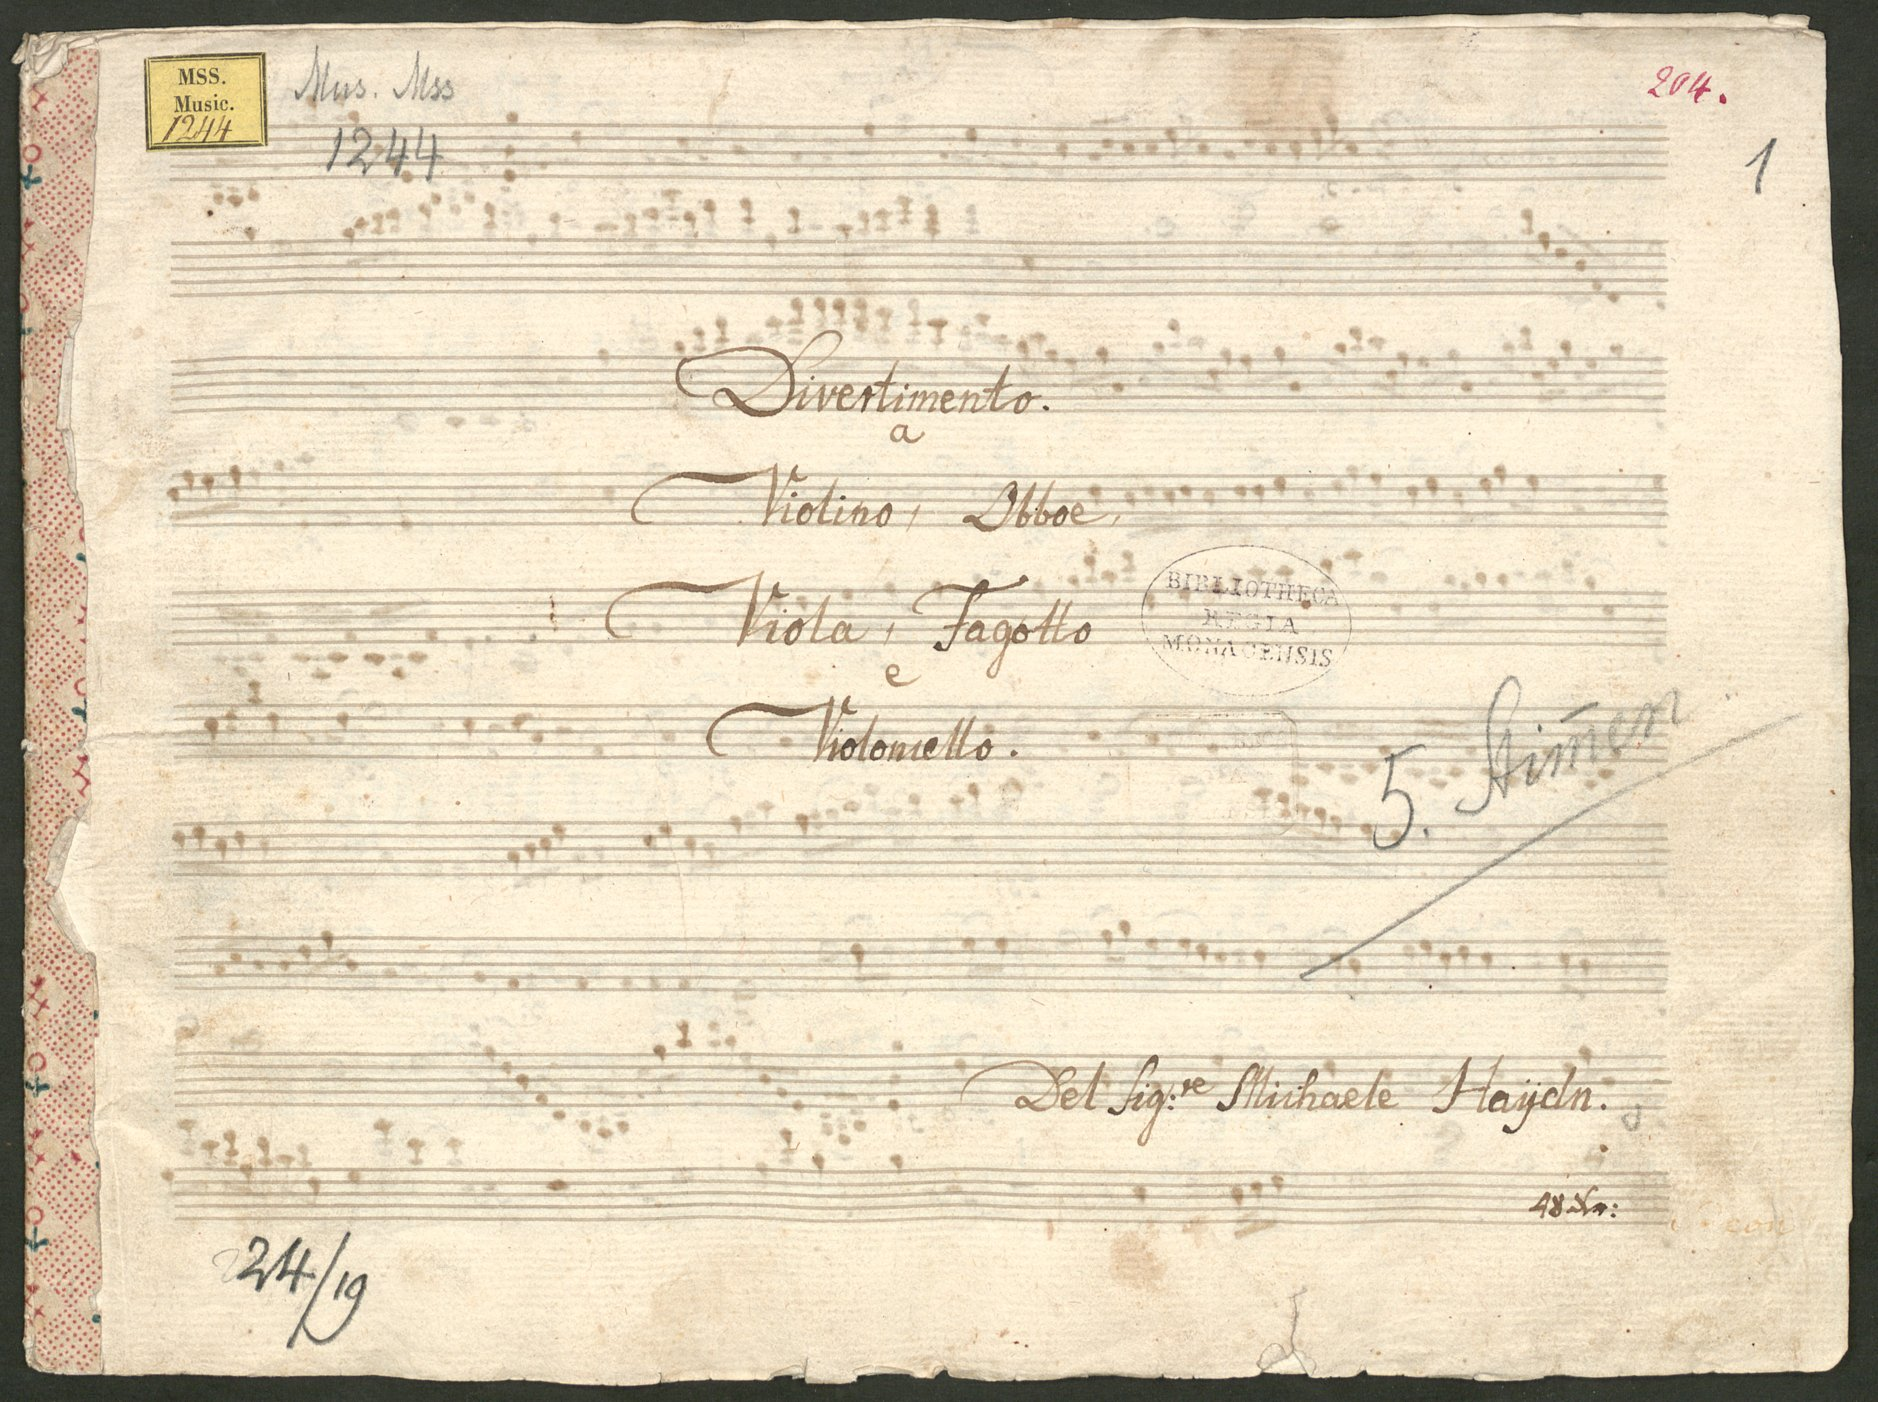 MSS.
Music.
1244
Mus. Mss
1244
204.
1
Divertimento.
a
Violino, Obboe,
Viola, Fagotto
e
Violoncello.
BIBLIOTHECA
REGIA
MONACENSIS
5. Stim̄en
Del Sig:re Michaele Haÿdn.
24/19